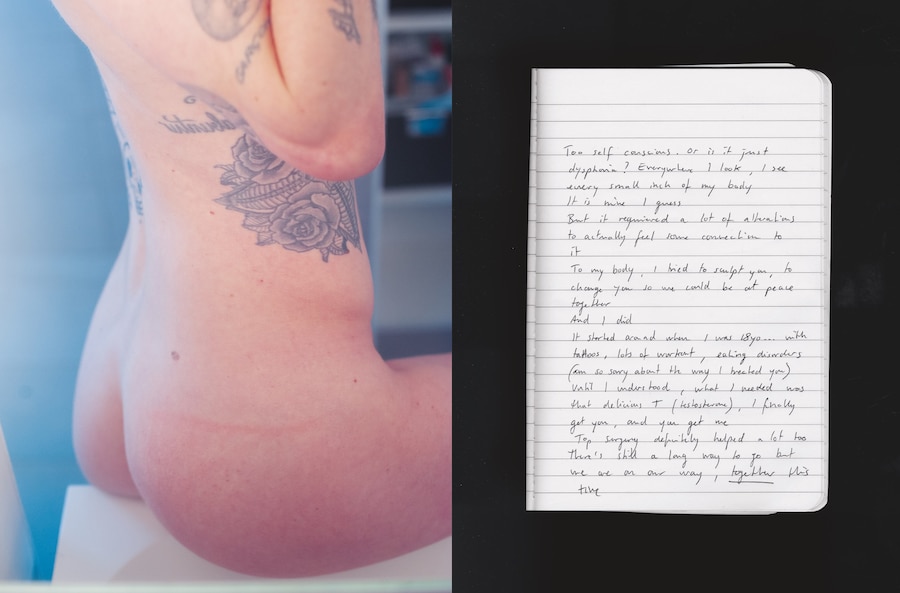 Too self conscious. Or is it just
dysphoria? Everywhere I look, I see
every small inch of my body
It is mine I guess
But it requiered a lot of alterations
to actually feel some connection to
it
To my body, I tried to sculpt you, to
change you so we could be at peace
together
And I did
It started around when I was 18yo... with
tattoos, lots of workout, eating disorders
(am so sorry about the way I treated you)
Until I understood, what I needed was
that delicious T (testosterone), I finally
get you, and you get me
Top surgery definitely helped a lot too
There's still a long way to go but
we are on our way, together this
time